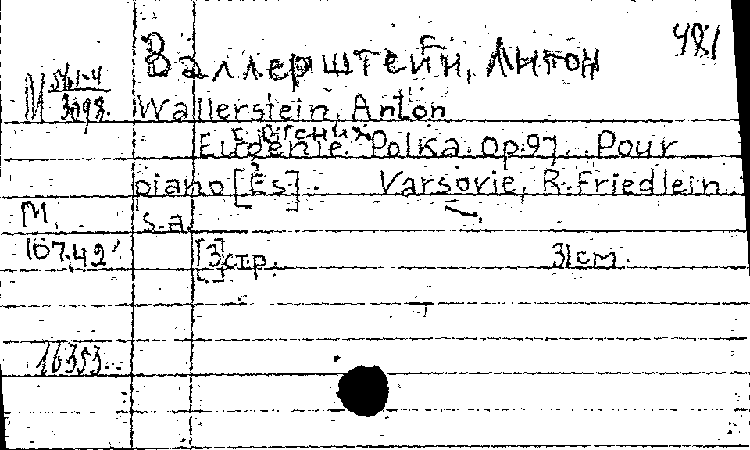 Валлерштейн, Антон 481
М 561-4
3098. Wallerstein, Anton
Евгения
Eugenie. Polka. Op. 97. Pour
piano [Es]. Varsovie, R. Friedlein.
М. s.a.
107.42 [3] стр. 31 cm.
16353.